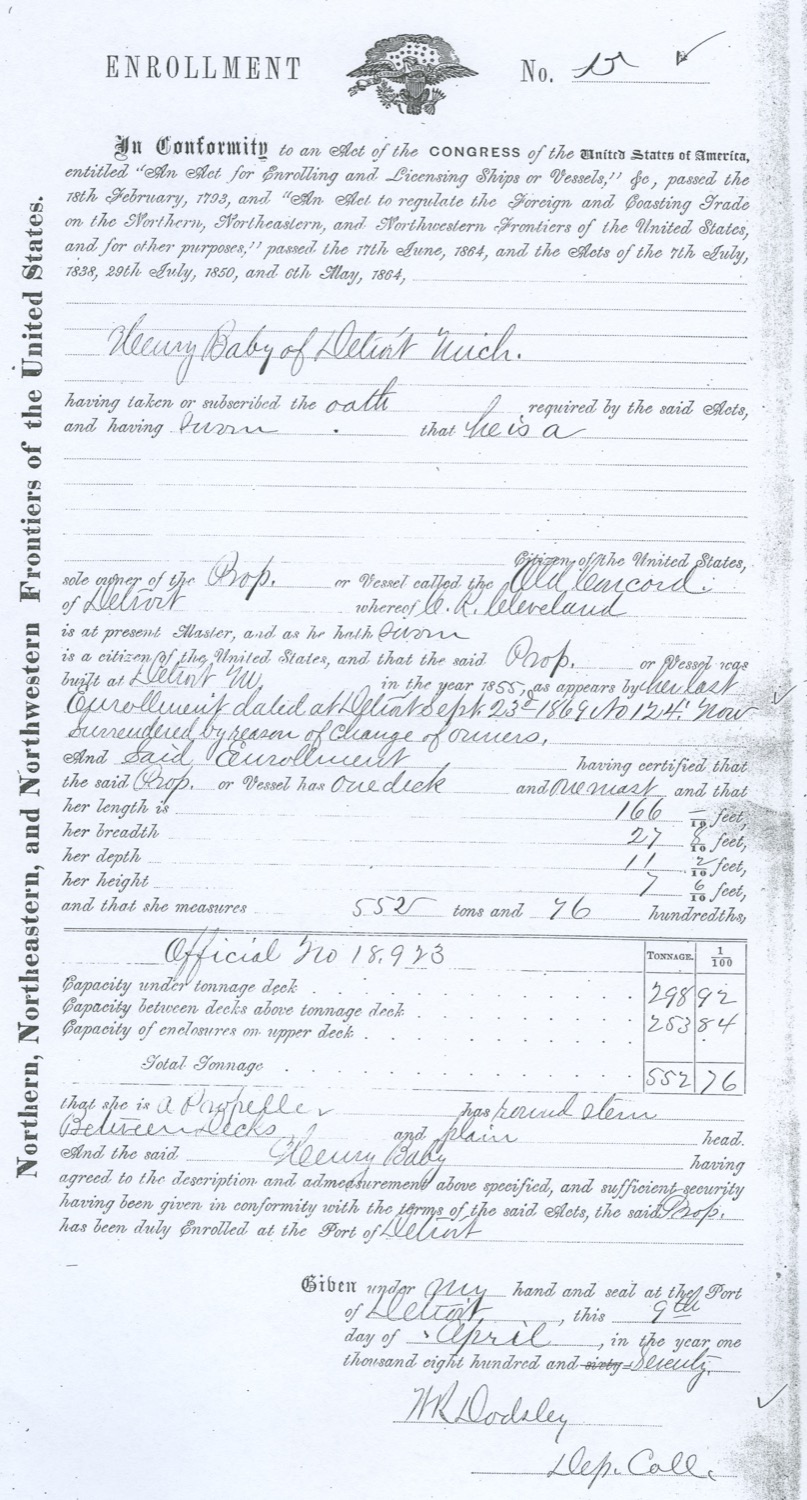 ENROLLMENT No. 15
In Conformity to an Act of the CONGRESS of the United States of America,
entitled "An Act for Enrolling and Licensing Ships or Vessels," &c, passed the
18th February, 1793, and "An Act to regulate the Foreign and Coasting Trade
on the Northern, Northeastern, and Northwestern Frontiers of the United States,
and for other purposes," passed the 17th June, 1864, and the Acts of the 7th July,
1838, 29th July, 1850, and 6th May, 1864,
Henry Baby of Detroit Mich.
having taken or subscribed the oath required by the said Acts,
and having sworn that he is a
Citizen of the United States,
sole owner of the Prop. or Vessel called the Old Concord
of Detroit whereof C. R. Cleveland
is at present Master, and as he hath sworn
is a citizen of the United States, and that the said Prop. or Vessel was
built at Detroit M. in the year 1855, as appears by her last
Enrollment dated at Detroit Sept. 23d 1869 No 124. Now
Surrendered by reason of change of owners.
And Said Enrollment having certified that
the said Prop. or Vessel has one deck and one mast and that
her length is 166 –/10 feet,
her breadth 27 8/10 feet,
her depth 11 2/10 feet,
her height 7 6/10 feet,
and that she measures 552 tons and 76 hundredths,
Official No 18.923 TONNAGE. 1/100
Capacity under tonnage deck 298 92
Capacity between decks above tonnage deck 253 84
Capacity of enclosures on upper deck
Total Tonnage 552 76
that she is a Propeller has round stern
Between Decks and plain head.
And the said Henry Baby having
agreed to the description and admeasurement above specified, and sufficient security
having been given in conformity with the terms of the said Acts, the said Prop.
has been duly Enrolled at the Port of Detroit
Given under my hand and seal at the Port
of Detroit, this 9th
day of April, in the year one
thousand eight hundred and sixty- Seventy.
WR Dodsley
Dep. Coll.
Northern, Northeastern, and Northwestern Frontiers of the United States.